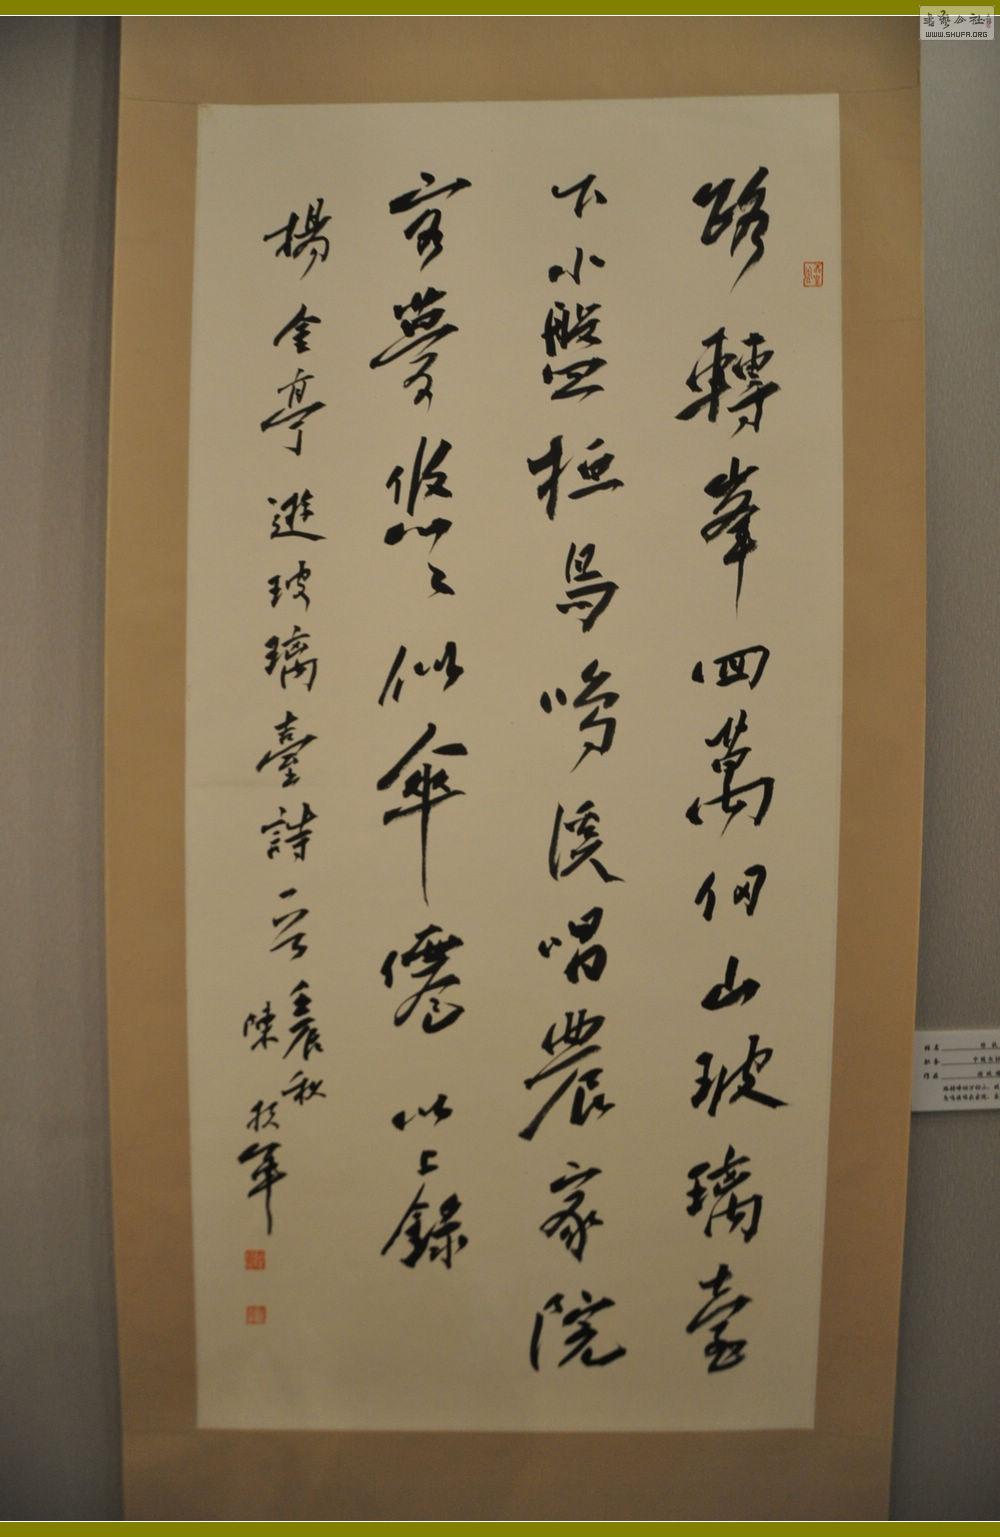 路轉峯四萬仞山玻璃臺
下小盤桓鳥鳴溪唱農家院
客夢悠々似傘僊以上錄
楊金亭遊玻璃臺詩一首壬辰秋
陳
年
WWW.SHUFA.ORG
姓名
职务
作品